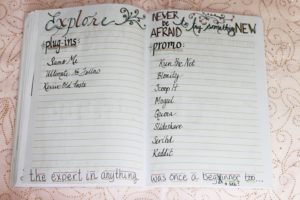 Explore
plug-ins:
Share Me
Ultimate to Follow
Revive Old Posts
the expert in anything
NEVER be
AFRAID to try something NEW
promo:
Run the Net
Blonity
Scoop It
Mogul
Quora
Slideshare
Scribd
Reddit
was once a beginner too...